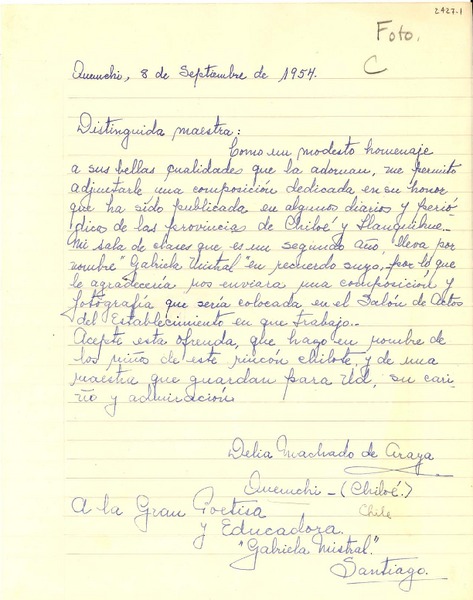 2427-1
Foto.
C
Quemchi, 8 de Septiembre de 1954.
Distinguida maestra:
Como un modesto homenaje
a sus bellas cualidades que la adornan, me permito
adjuntarle una composición dedicada en su honor
que ha sido publicada en algunos diarios y perió
dicos de las provincias de Chiloé y Llanquihue.
Mi sala de clases que es un segundo año, lleva por
nombre "Gabriela Mistral" en recuerdo suyo, por lo que
le agradecería nos enviara una composición y
fotografía que sería colocada en el Salón de Actos
del Establecimiento en que trabajo..
Acepte esta ofrenda, que hago en nombre de
los niños de este rincón chilote, y de una
maestra que guardan para Ud, su cari-
ño y admiración.
Delia Machado de Araya
Quemchi-(Chiloé.)
Chile
A la Gran Poetisa
y Educadora.
"Gabriela Mistral."
Santiago.